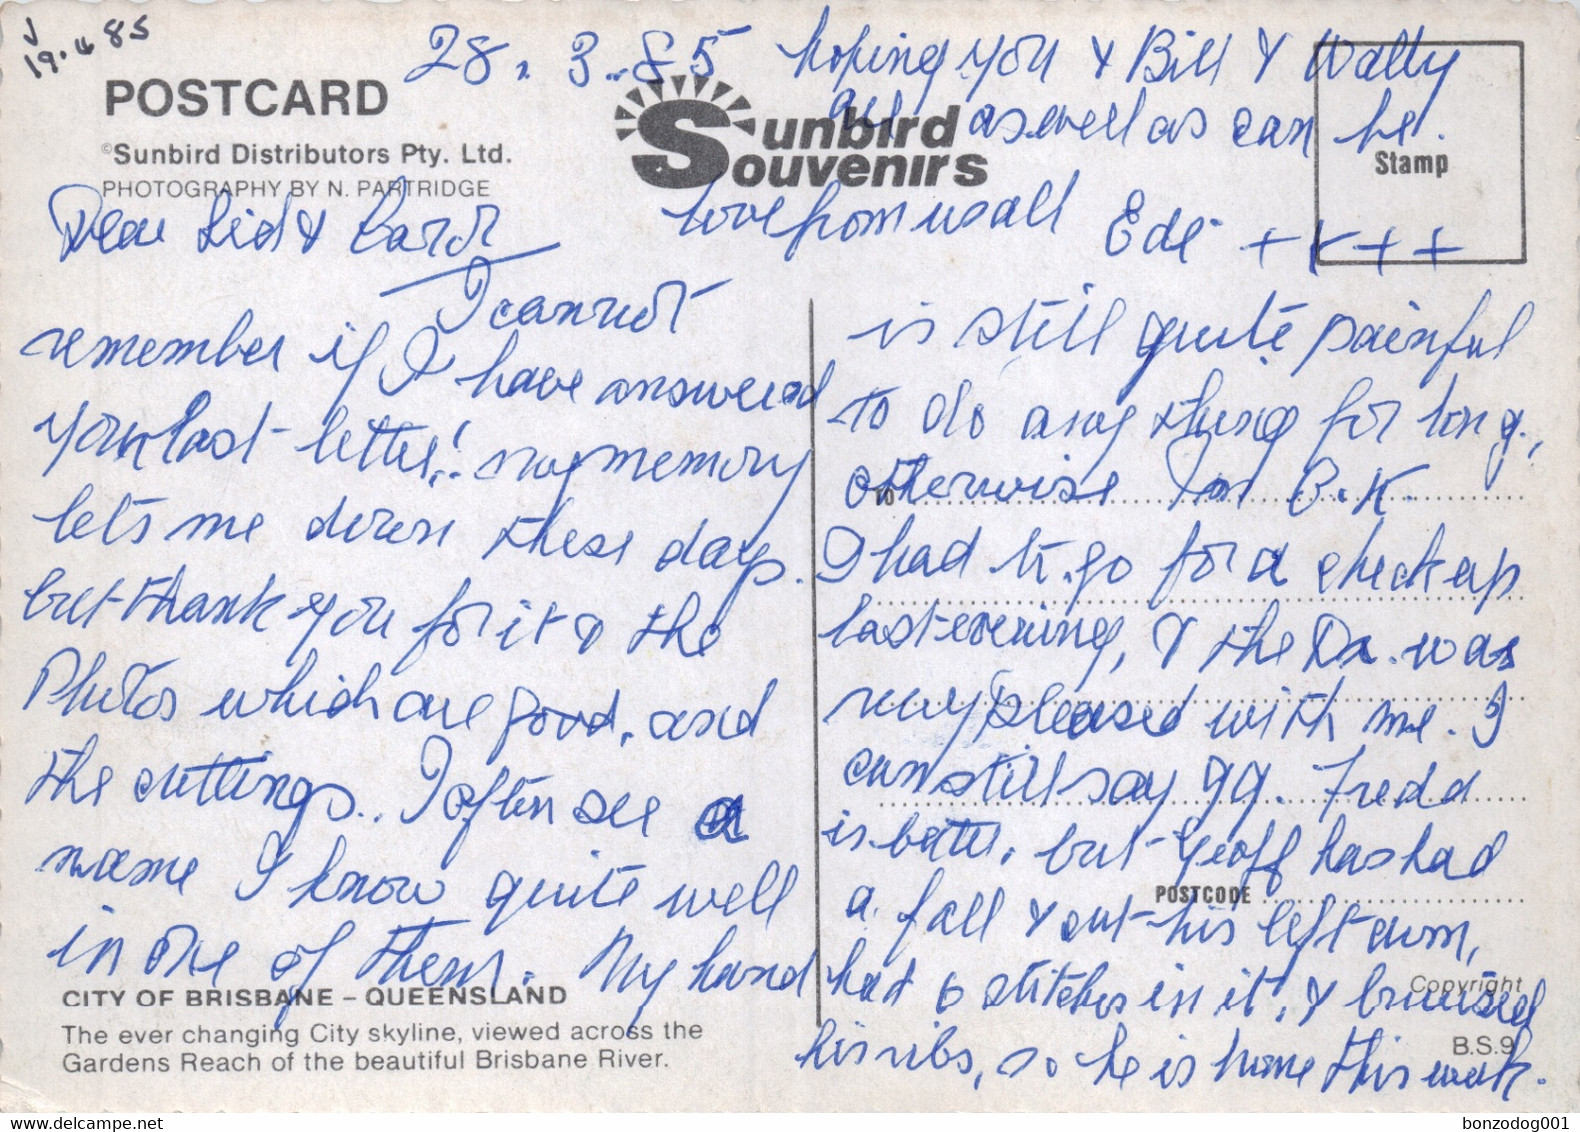 19.4.85
28.3.85
POSTCARD
©Sunbird Distributors Pty. Ltd.
PHOTOGRAPHY BY N. PARTRIDGE
Sunbird
Souvenirs
Stamp
Dear Sid &
I cannot
remember if I have answered
your last letter! my memory
lets me down these days.
but thank you for it & the
Photos which are good, and
the cuttings.. I often see a
name I know quite well
in one of them. My hand
is still quite painful
to do any thing for long,
otherwise Im O.K.
I had to go for a check up
last evening, & the Dr. was
very pleased with me. I
can still say 99. Fredd
is better, but Geoff has had
a fall & cut his left arm,
had 6 stitches in it, & bruised
his ribs, so he is home this week.
hoping you & Bill & Wally
all as well as can be.
love from us all Ede ++++
TO
POSTCODE
CITY OF BRISBANE – QUEENSLAND
The ever changing City skyline, viewed across the
Gardens Reach of the beautiful Brisbane River.
Copyright
B.S.9
bonzodog001